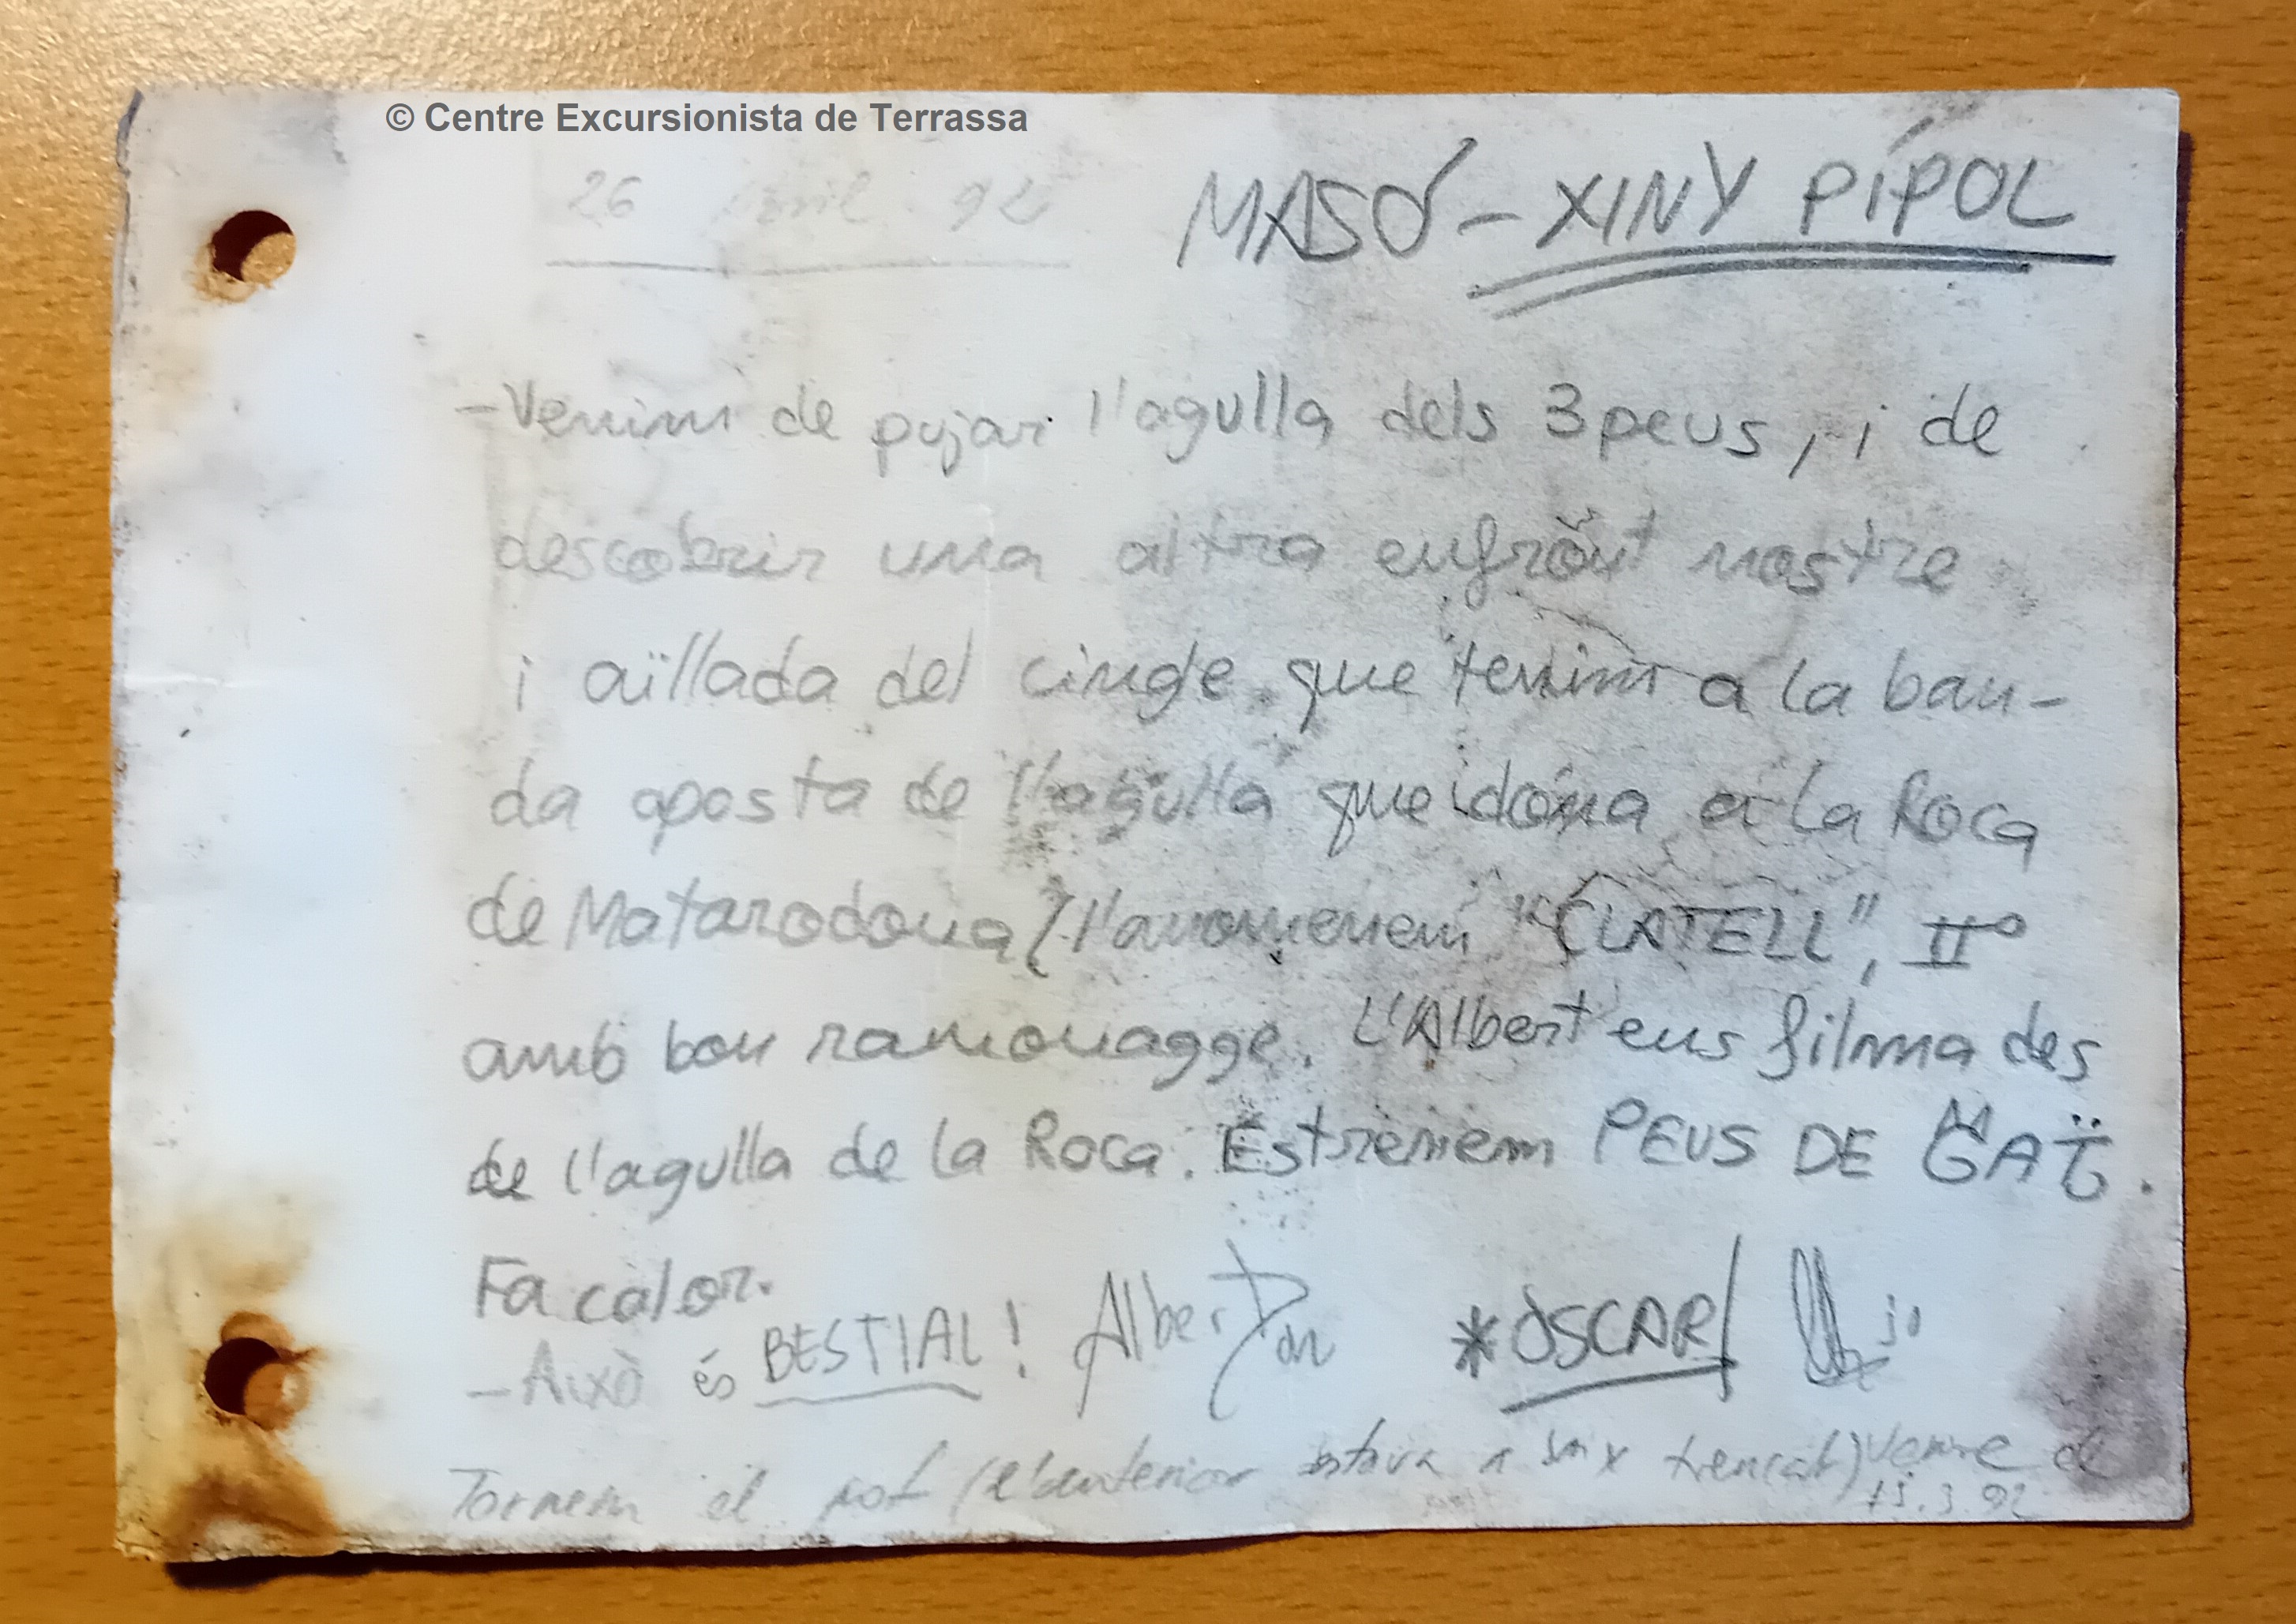 © Centre Excursionista de Terrassa
26 abril 92
MASÓ - XINY PÍPOL
- Venim de pujar l'agulla dels 3 peus, i de
descobrir una altra enfront nostre
i aïllada del cingle que tenim a la ban-
da oposta de l'agulla que dóna a la Roca
de Matarodona, l'anomenem "CLATELL", IIº
amb bon ramonagge. L'Albert ens filma des
de l'agulla de la Roca. Estrenem PEUS DE GAT.
Fa calor.
- Això és BESTIAL! Albert
* ÒSCAR
Tornem el pot (l'anterior estava trencat)